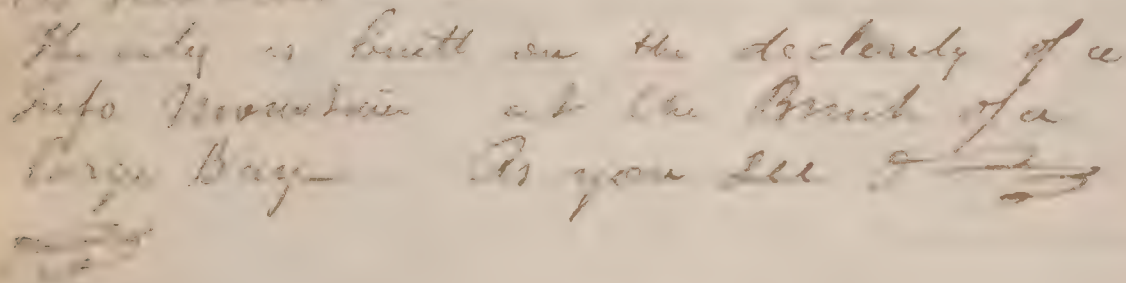 The city is built on the declevity of a
Mountain at the Brink of a
large Bay— As you see